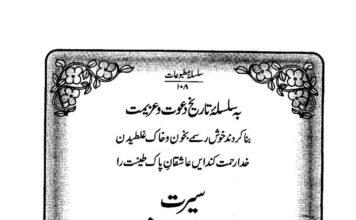 سلسلۂ مطبوعات
۱۰۸
بہ سلسلۂ تاریخ دعوت و عزیمت
بنا کردند خوش رسمے بخون و خاک غلطیدن
خدا رحمت کند ایں عاشقانِ پاک طینت را
سیرت